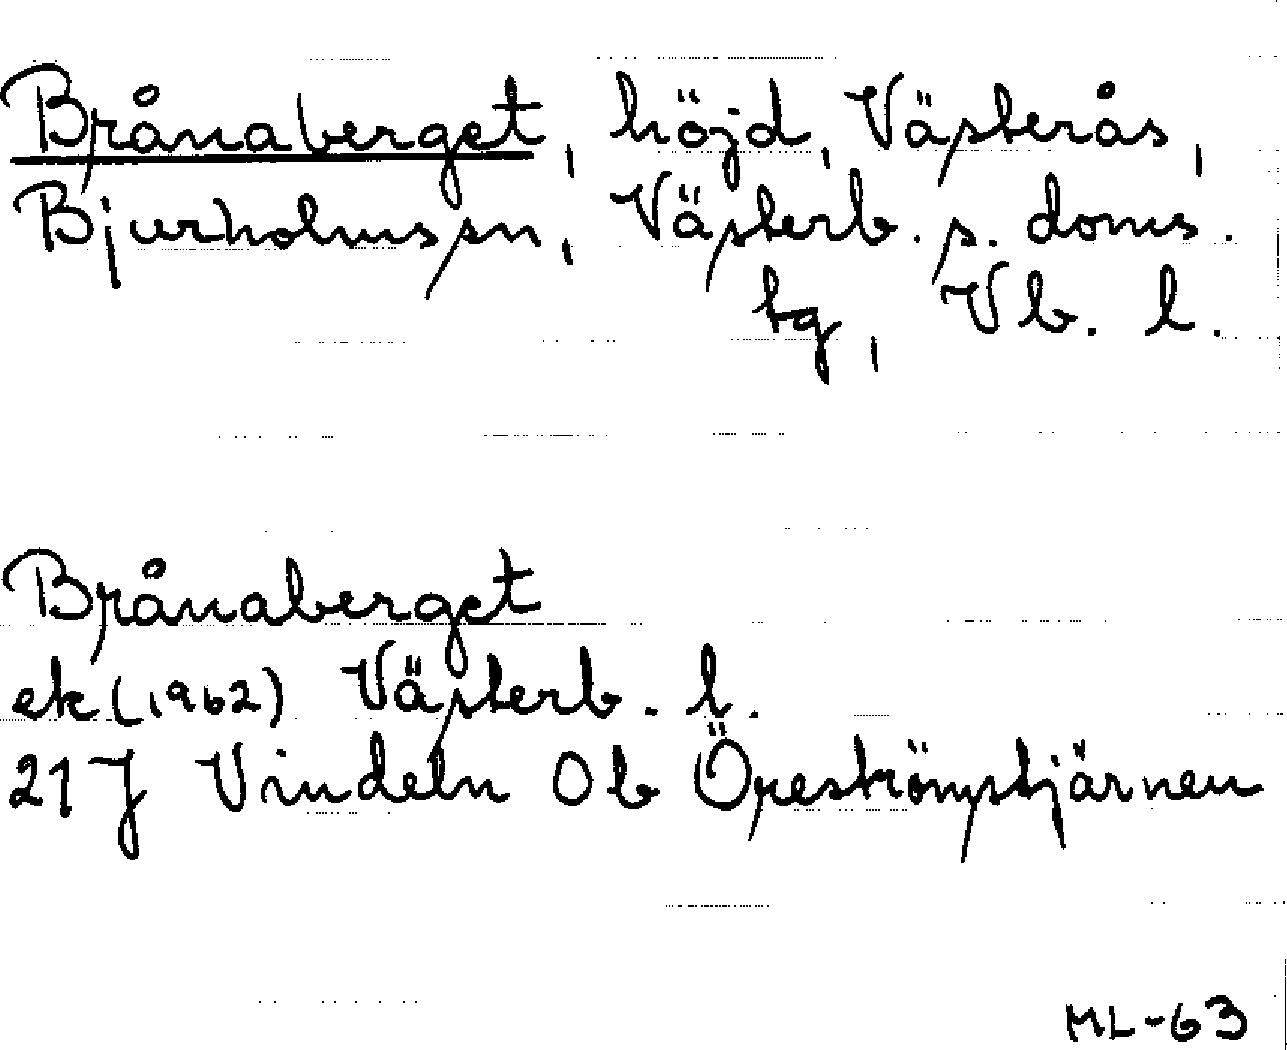 Brånaberget, höjd, Västerås,
Bjurholms sn, Västerb. s. doms.
tg, Vb. l.
Brånaberget
ek (1962) Västerb. l.
21 J Vindeln 0 b Öreströmstjärnen
ML-63